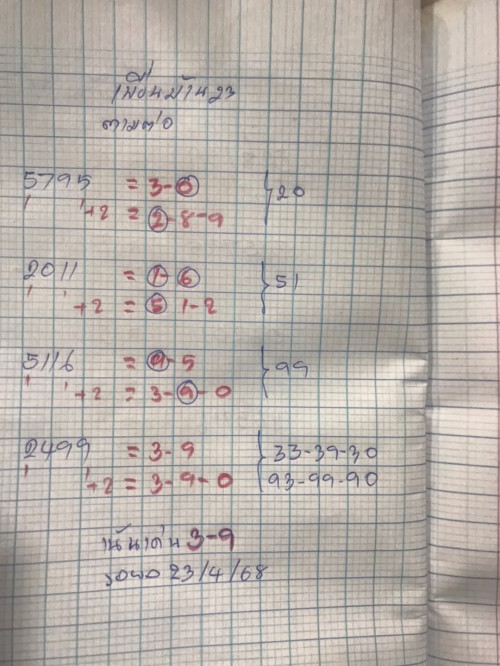 เพื่อนบ้าน23
ตามต่อ
5795 = 3-0 } 20
+2 = 2-8-9
2011 = 1-6 } 51
+2 = 5 1-2
5116 = 9-5 } 99
+2 = 3-9-0
2499 = 3-9 } 33-39-30
+2 = 3-9-0 93-99-90
เน้นเด่น 3-9
รอผล 23/4/68